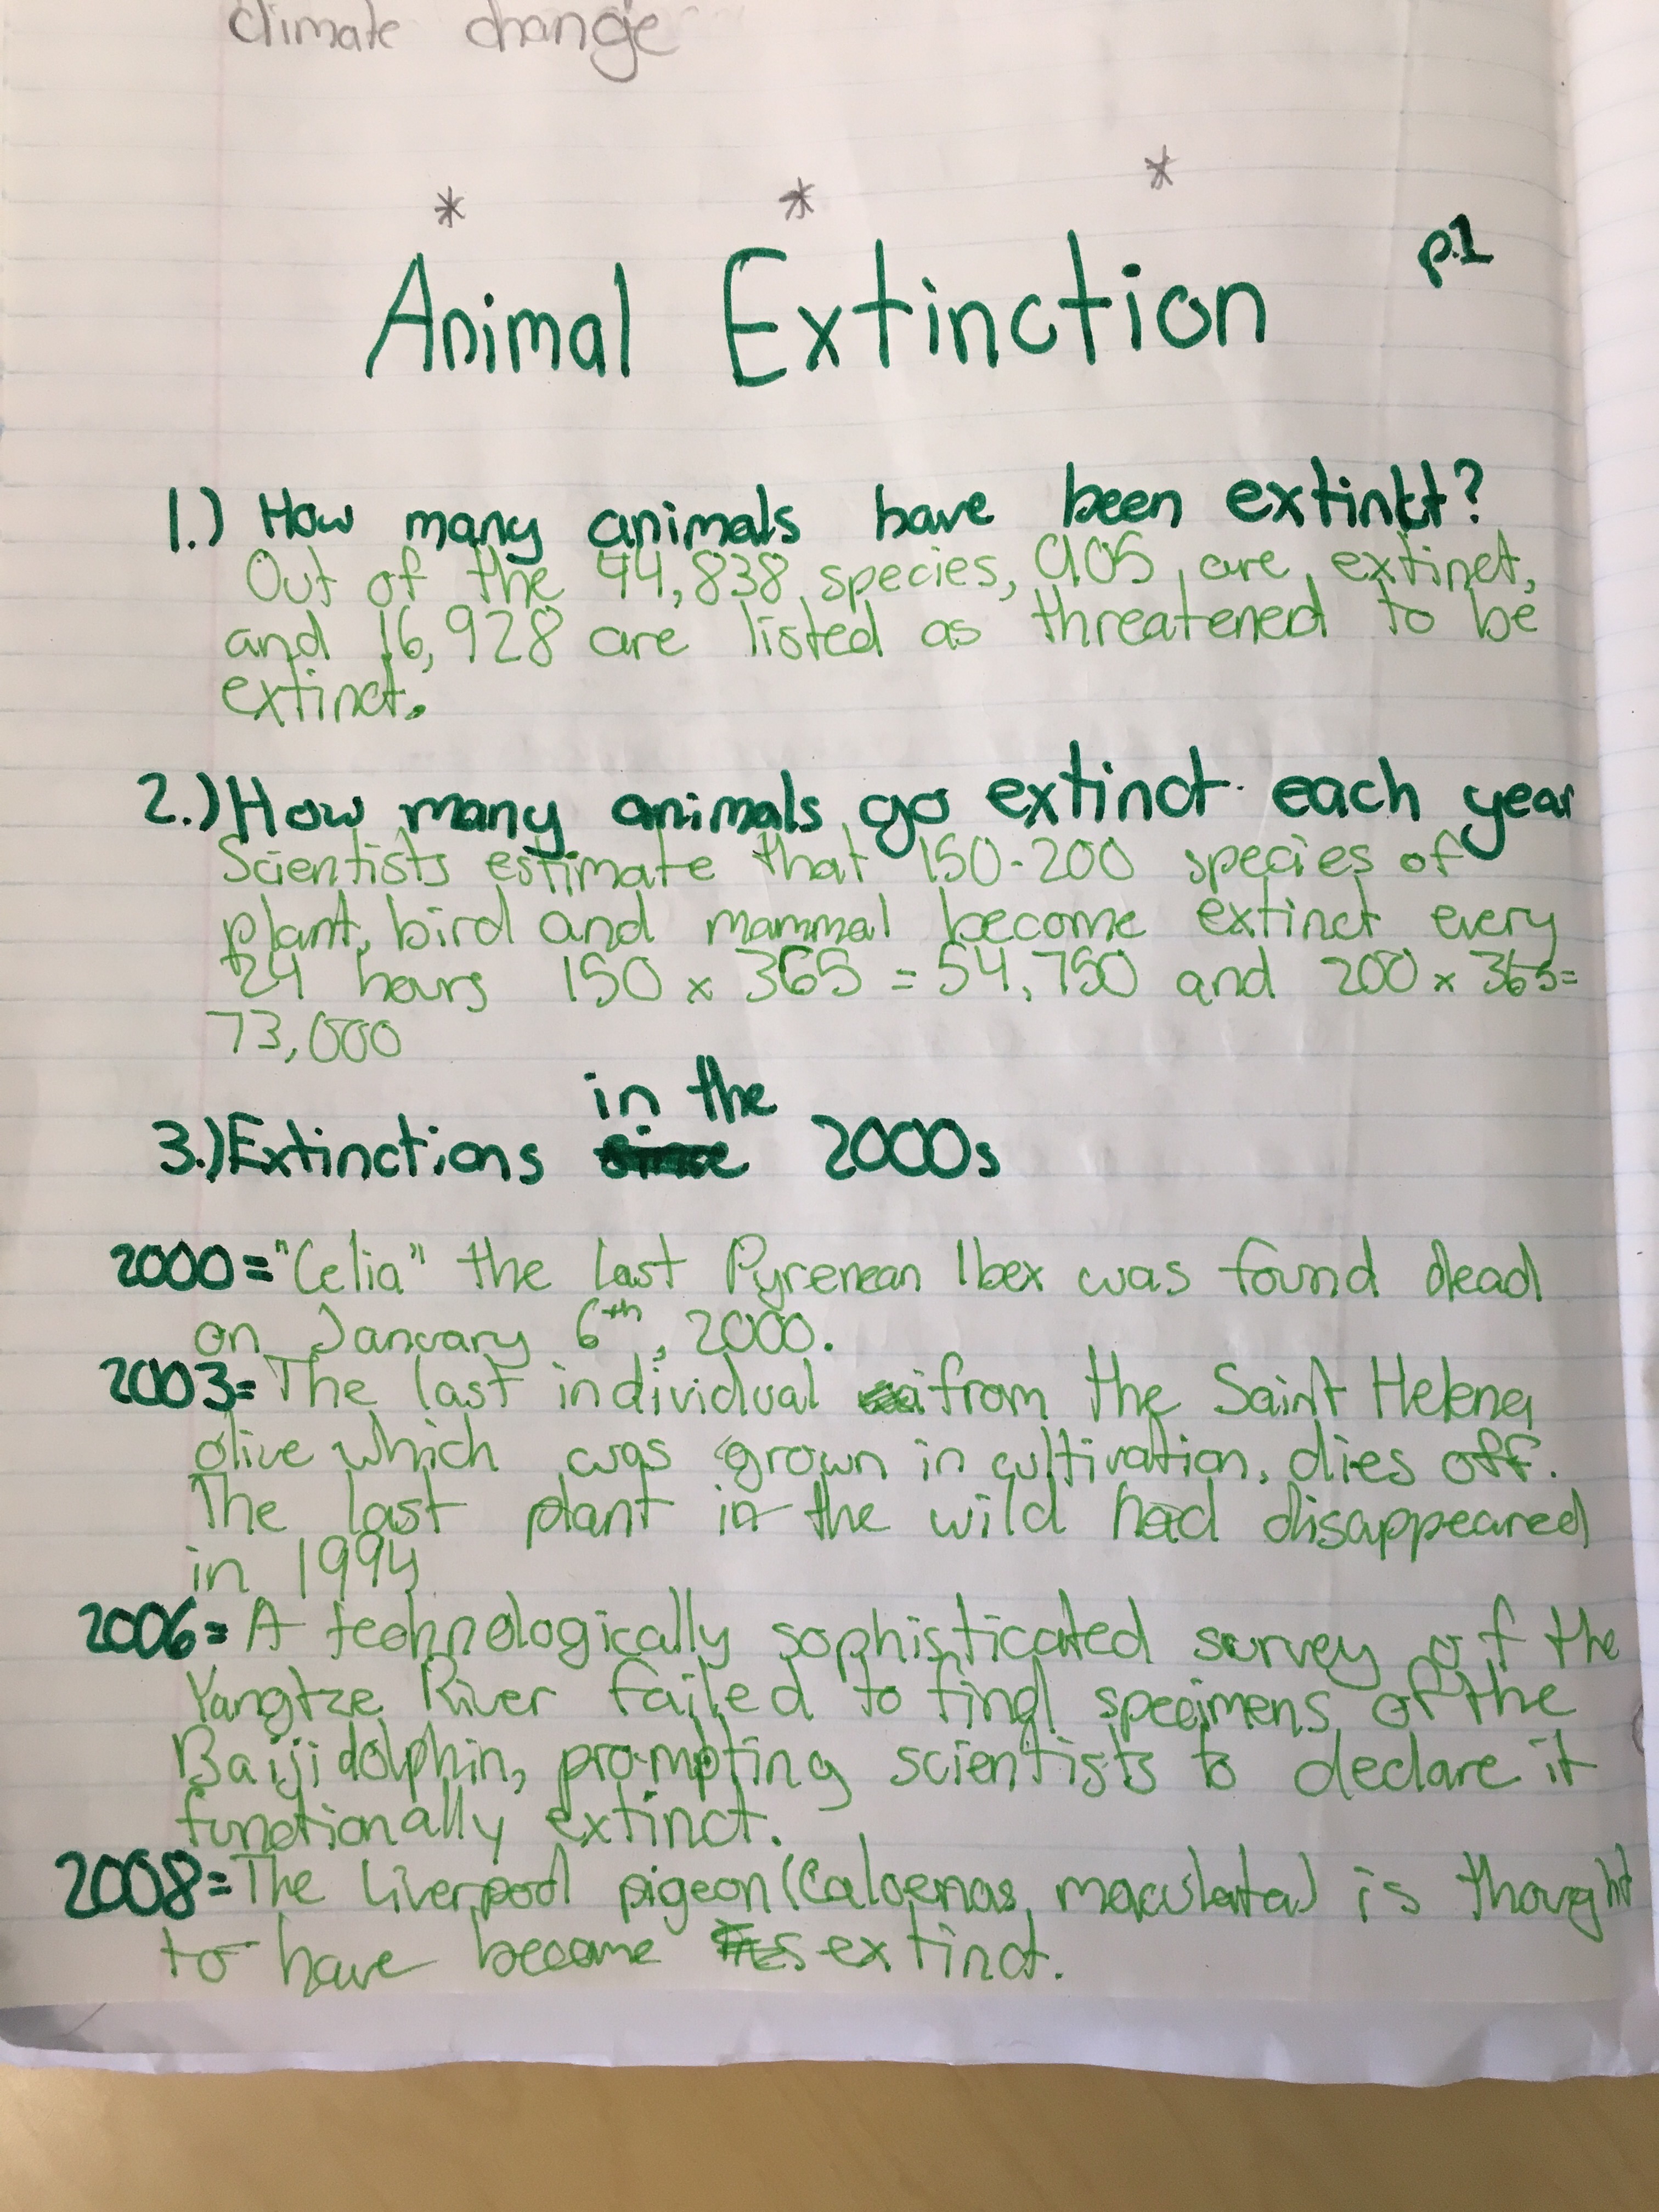 climate change
* * *
p.1
Animal Extinction
1.) How many animals have been extinkt?
Out of the 44,838 species, 905 are extinct,
and 16,928 are listed as threatened to be
extinct.
2.) How many animals go extinct each year
Scientists estimate that 150-200 species of
plant, bird and mammal become extinct every
24 hours 150 x 365 = 54,750 and 200 x 365=
73,000
in the
3.) Extinctions since 2000s
2000= "Celia" the last Pyrenean Ibex was found dead
on January 6th, 2000.
2003= The last individual from the Saint Helena
olive which was grown in cultivation, dies off.
The last plant in the wild had disappeared
in 1994
2006= A technologically sophisticated survey of the
Yangtze River failed to find specimens of the
Baiji dolphin, prompting scientists to declare it
functionally extinct.
2008= The Liverpool pigeon (Caloenas maculata) is thought
to have become extinct.